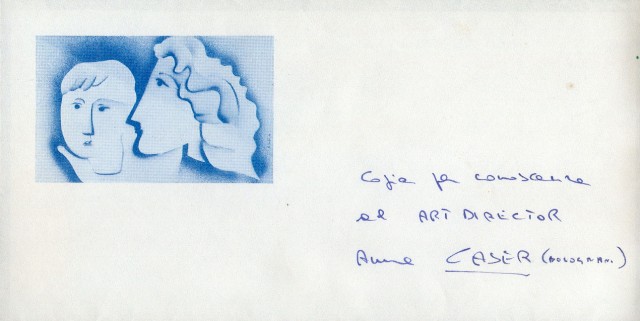 Copia per conoscenza
al ART DIRECTOR
Anna CASER (BOLOGNANI)